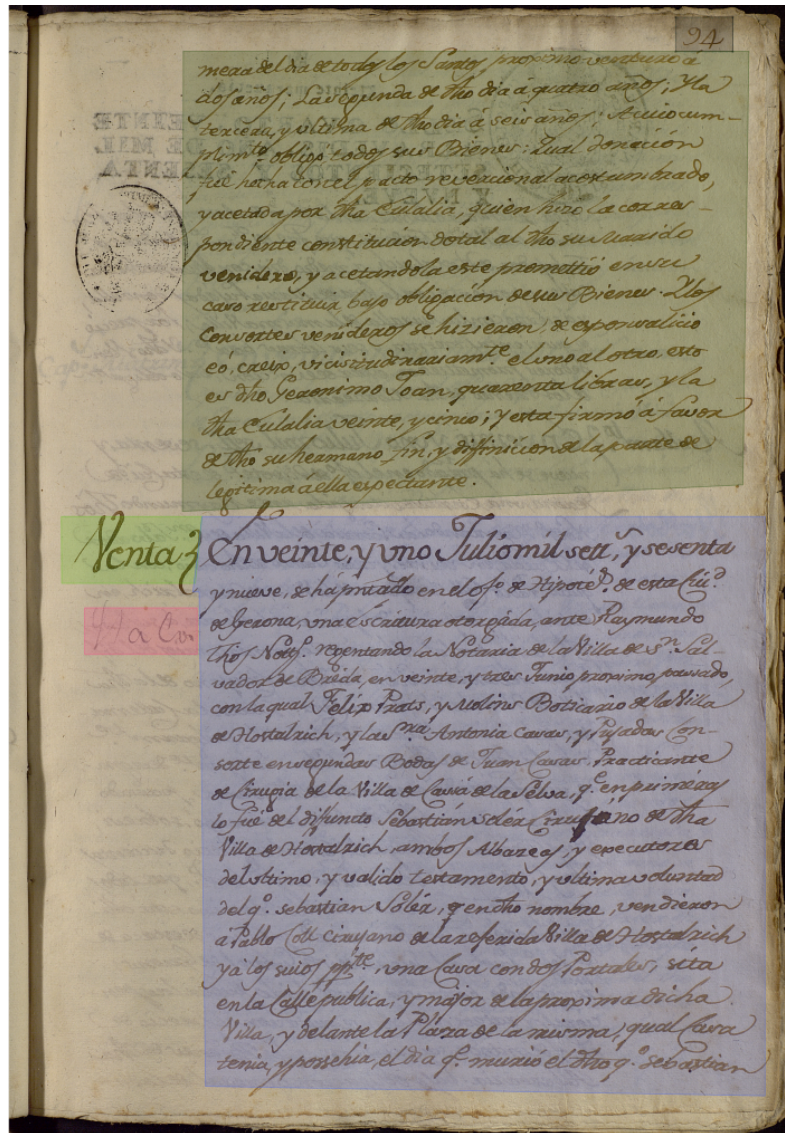 94
mera del dia de todos los Santos proximo venturo á
dos años; La segunda de dho dia á quatro años; Y la
tercera, y ultima de dho dia á seis años; A cuio cum-
plimto. obligó todos sus Bienes: Qual donación
fué hecha con el pacto revercional acostumbrado,
y acetada por dha Eulalia, quien hizo la corres-
pondiente constitución dotal al dho su Marido
venidero, y acetandola este promettió en su
caso restituir, bajo obligación de sus Bienes. Y los
Consortes venideros se hizieron, de esponsalicio
eó, creix, vicissitudinariamte. el uno al otro, esto
es dho Geronimo Joan, quarenta libras, y la
dha Eulalia veinte, y cinco; y esta firmó á favor
de dho su hermano fin, y diffinicion de la parte de
legitima á ella espectante.
Venta
En veinte, y uno Julio mil setts. y sesenta
y nueve, se há pntado en el ofo. de Hipotés. de esta Ciud.
de Gerona, una escritura otorgada, ante Raymundo
Thos Notº. regentando la Notaria de la Villa de Sn. Sal-
vador de Breda, en veinte, y tres Junio proximo passado,
con la qual Felix Prats, y Molins Boticario de la Villa
de Hostalrich, y la Sra. Antonia Casas, y Pujadas Con-
sorte en segundas Bodas de Juan Casas, Practicante
de Cirugia de la Villa de Cassá de la Selva, qe. en primeras
lo fué del difunto Sebastián Solér Cirujano de dha
Villa de Hostalrich, ambos Albaceas, y executores
del ultimo, y valido testamento, y ultima voluntad
del qo. Sebastian Solér, y en dho nombre, vendieron
á Pablo Coll cirujano de la referida Villa de Hostalrich
y á los suios ppte. una Casa con dos Portales, sita
en la Calle publica, y major de la proxima dicha
Villa, y delante la Plaza de la misma, qual Casa
tenia, y possehia, el dia qe. murió el dho qo. Sebastian